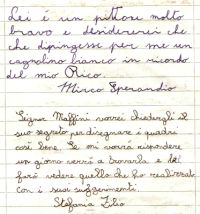 Lei é un pittore molto
bravo e desidererei che
che dipingesse per me un
cagnolino bianco in ricordo
del mio Rico.
Mirco Sperandio
Signor Maffini vorrei chiedergli il
suo segreto per disegnare i quadri
così bene. Se mi vorrà rispondere
un giorno verrò a trovarla e le
farò vedere quello che ho realizzato
con i suoi suggerimenti.
Stefania Zilio